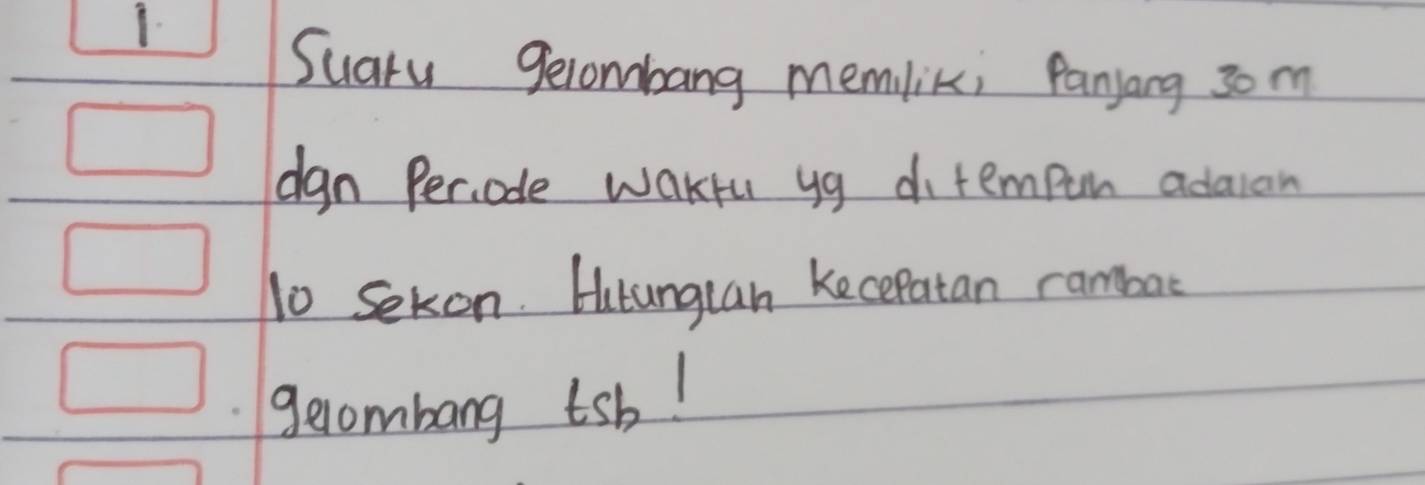 1. Suatu gelombang memiliki Panjang 30 m
dgn Periode waktu yg ditempuh adalah
10 sekon. Hitunglah kecepatan rambat
gelombang tsb!